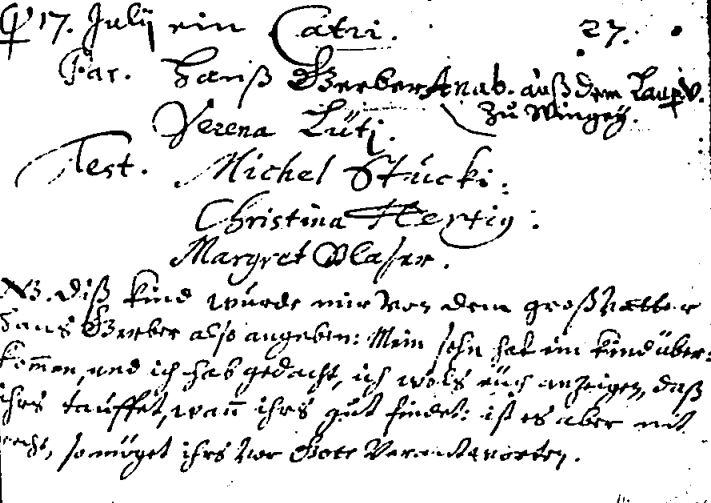 17. Julij ein Catri. 27.
Par. Hanß Gerber Anab. auß dem Laup. V.
zu Wingey.
Verena Lüti.
Test. Michel Stucki:
Christina Hertig:
Margret Blaser.
NB. diß kind wurde mir von dem großvatter
Hans Gerber also angeben: Mein sohn hat ein kind über:
kommen, und ich hab gedacht, ich wols euch anzeigen, daß
ihrs tauffet, wan ihrs gut findet: ist es aber nit
recht, so möget ihrs vor Gott verantworten.